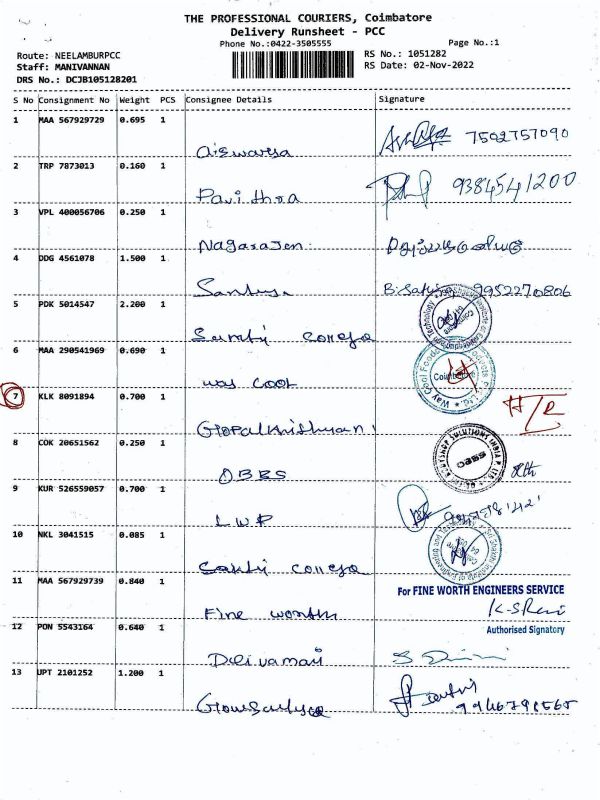 THE PROFESSIONAL COURIERS, Coimbatore
Delivery Runsheet - PCC
Phone No.:0422-3505555
Page No.:1
Route: NEELAMBURPCC
RS No.: 1051282
Staff: MANIVANNAN
RS Date: 02-Nov-2022
DRS No.: DCJB105128201
S No Consignment No Weight PCS Consignee Details Signature
1 MAA 567929729 0.695 1
Aiswarya 7502757090
2 TRP 7873013 0.160 1
Pavithra 9384541200
3 VPL 400056706 0.250 1
Nagarajan
4 DDG 4561078 1.500 1
9952270806
5 PDK 5014547 2.200 1
6 MAA 290541969 0.690 1
way cool
Coimbatore
7 KLK 8091894 0.700 1
Gopalkrishnan
8 COK 20651562 0.250 1
OBBS
9 KUR 526559057 0.700 1
LWP
10 NKL 3041515 0.085 1
Sakti
11 MAA 567929739 0.840 1
For FINE WORTH ENGINEERS SERVICE
Fine worth
12 PON 5543164 0.640 1
Authorised Signatory
13 UPT 2101252 1.200 1